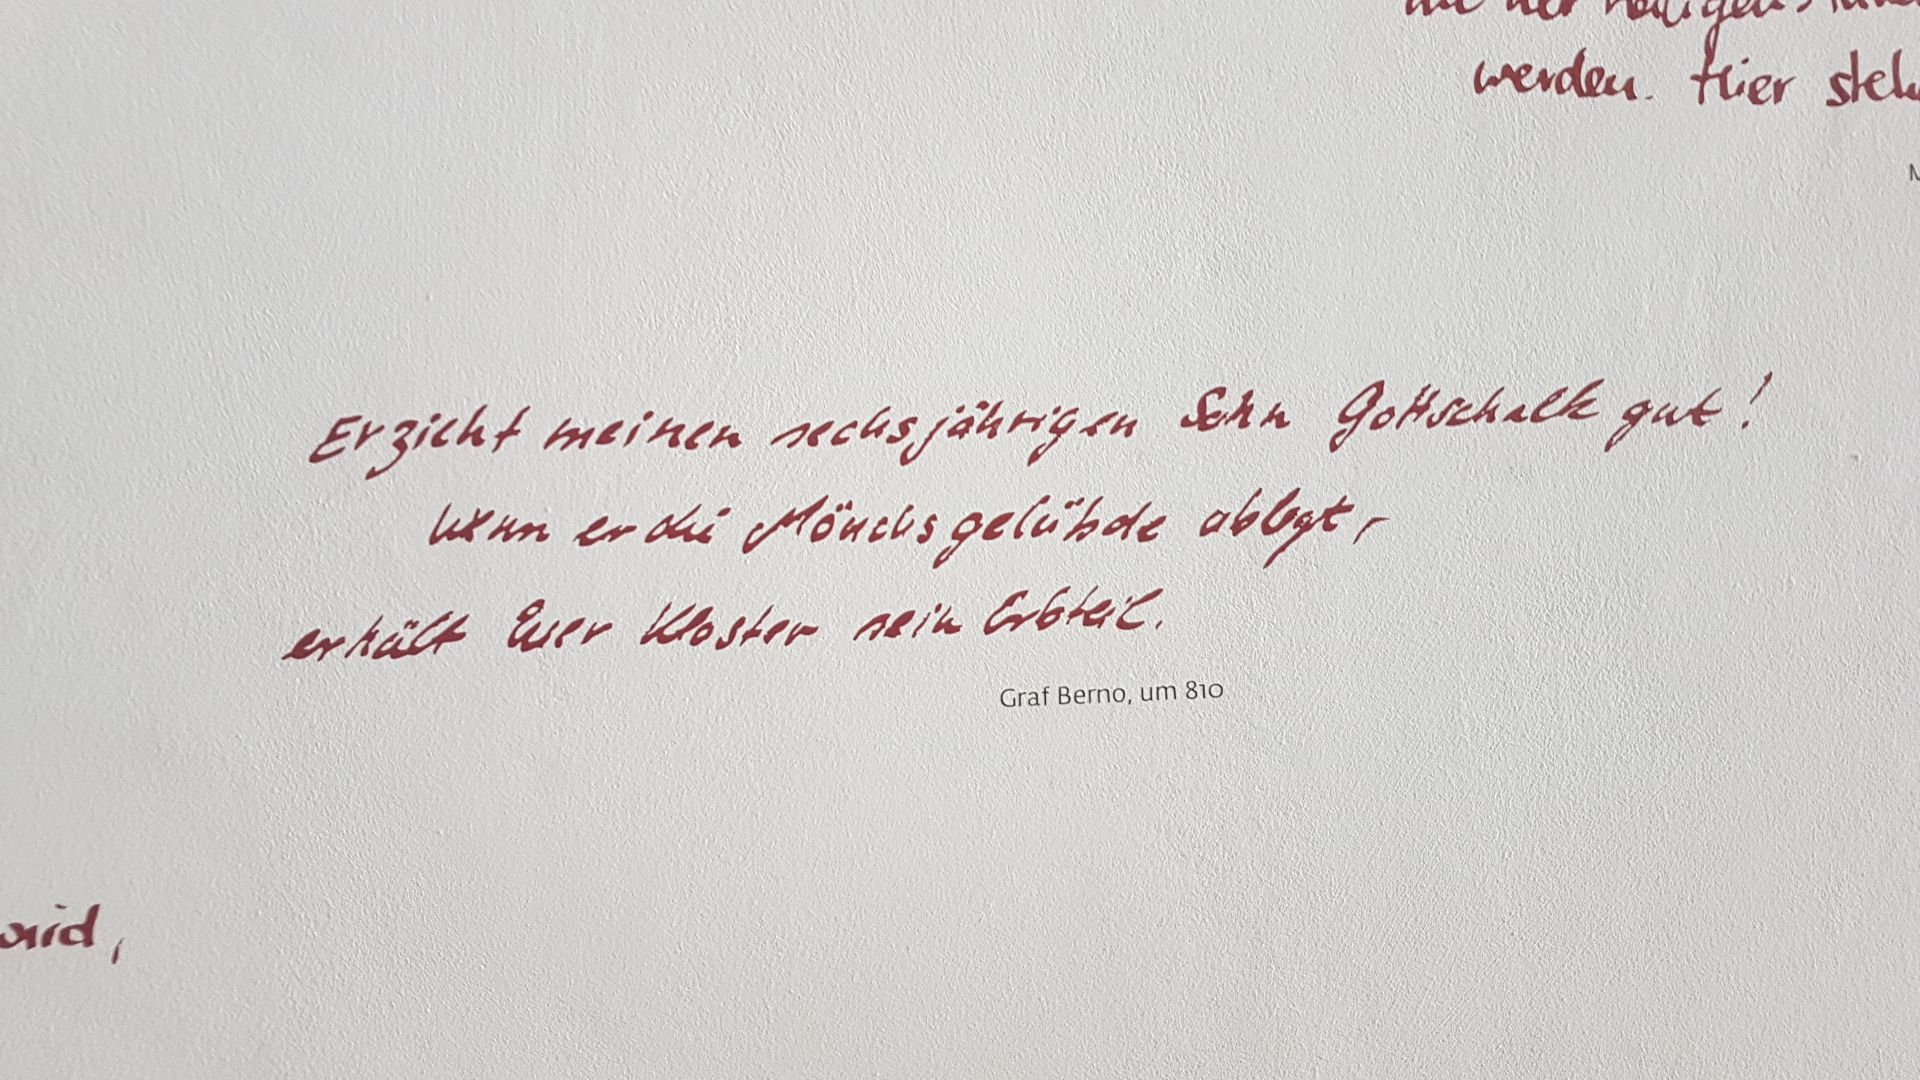 werden. Hier
Erzieht meinen sechsjährigen Sohn Gottschalk gut!
Wenn er die Mönchsgelübde ablegt,
erhält Euer Kloster sein Erbteil.
Graf Berno, um 810